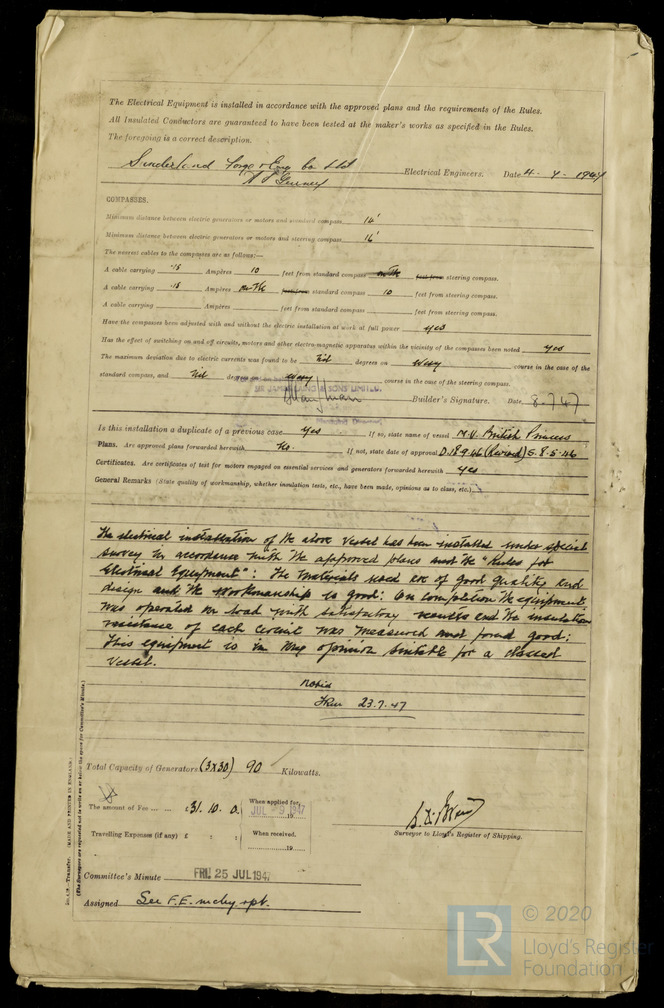 The Electrical Equipment is installed in accordance with the approved plans and the requirements of the Rules.
All Insulated Conductors are guaranteed to have been tested at the maker's works as specified in the Rules.
The foregoing is a correct description.
Sunderland Forge & Eng Co Ltd
Electrical Engineers. Date 4-7-1947
COMPASSES.
Minimum distance between electric generators or motors and standard compass 14'
Minimum distance between electric generators or motors and steering compass 16'
The nearest cables to the compasses are as follows:—
A cable carrying .15 Ampères 10 feet from standard compass on the feet from steering compass.
A cable carrying .15 Ampères on the feet from standard compass 10 feet from steering compass.
A cable carrying Ampères feet from standard compass feet from steering compass.
Have the compasses been adjusted with and without the electric installation at work at full power yes
Has the effect of switching on and off circuits, motors and other electro-magnetic apparatus within the vicinity of the compasses been noted yes
The maximum deviation due to electric currents was found to be Nil degrees on every course in the case of the
standard compass, and Nil degrees on every course in the case of the steering compass.
SIR JAMES LAING & SONS LIMITED.
Builder's Signature. Date 8.7.47
Is this installation a duplicate of a previous case yes If so, state name of vessel M.V. British Princess
Plans. Are approved plans forwarded herewith No. If not, state date of approval D.18.9.46 (Revised) S.8.5.46
Certificates. Are certificates of test for motors engaged on essential services and generators forwarded herewith yes
General Remarks (State quality of workmanship, whether insulation tests, etc., have been made, opinions as to class, etc.)
The electrical installation of the above vessel has been installed under special
survey in accordance with the approved plans and the "Rules for
Electrical Equipment": The materials used are of good quality and
design and the workmanship is good: On completion the equipment
was operated on load with satisfactory results and the insulation
resistance of each circuit was measured and found good:
This equipment is in my opinion suitable for a classed
vessel.
Noted
23.7.47
Total Capacity of Generators (3x30) 90 Kilowatts.
The amount of Fee ... ... £31.10.0. When applied for, JUL 9 1947 19
Travelling Expenses (if any) £ : : When received, 19
Surveyor to Lloyd's Register of Shipping.
Committee's Minute FRI. 25 JUL 1947
Assigned See F.E. mchy rpt.
Transfer. (MADE AND PRINTED IN ENGLAND.)
(The Surveyors are requested not to write on or below the space for Committee's Minute.)
LR
© 2020
Lloyd's Register
Foundation